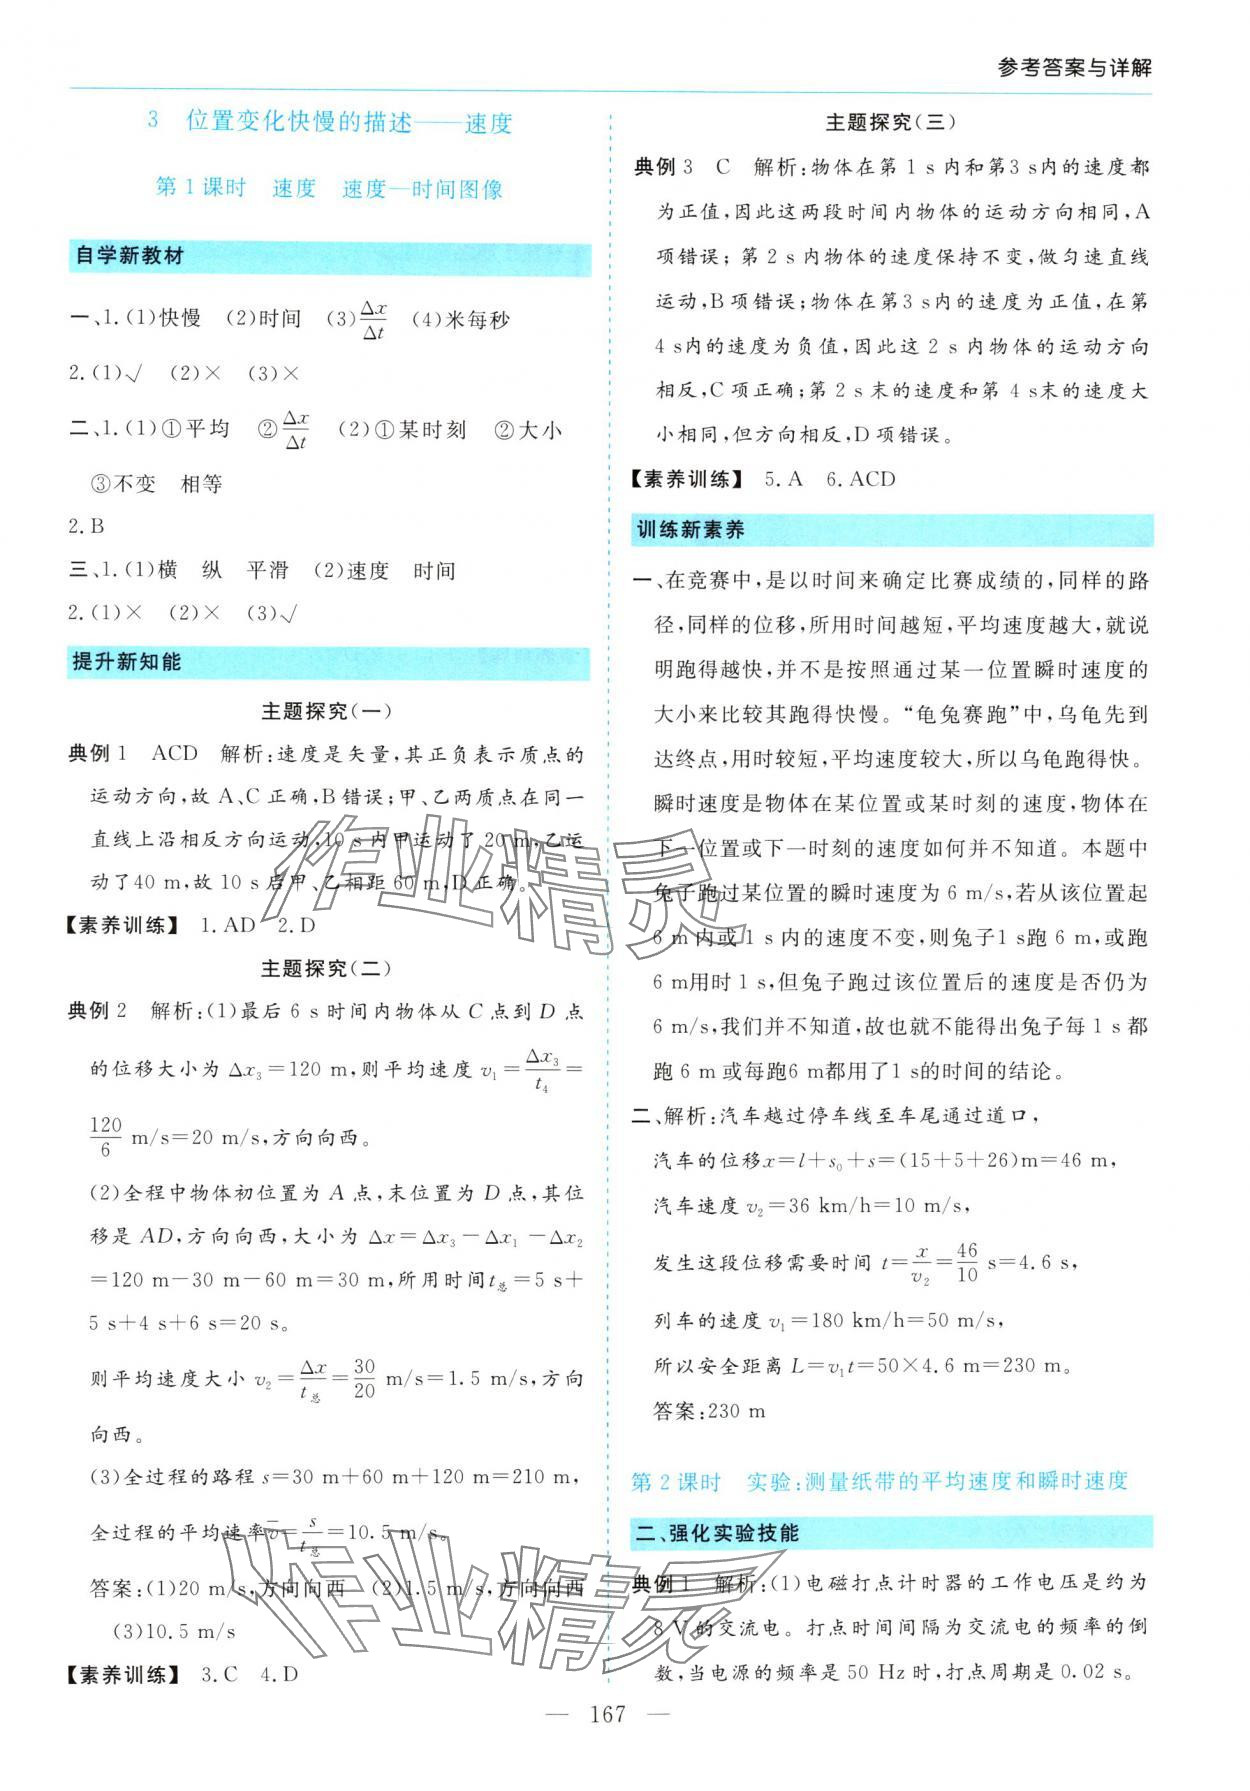 参考答案与详解
3　位置变化快慢的描述——速度
第1课时　速度　速度—时间图像
自学新教材
一、1.(1)快慢　(2)时间　(3)Δx/Δt　(4)米每秒
2.(1)√　(2)×　(3)×
二、1.(1)①平均　②Δx/Δt　(2)①某时刻　②大小
③不变　相等
2.B
三、1.(1)横　纵　平滑　(2)速度　时间
2.(1)×　(2)×　(3)√
提升新知能
主题探究(一)
典例1　ACD　解析:速度是矢量,其正负表示质点的
运动方向,故 A、C 正确,B 错误;甲、乙两质点在同一
直线上沿相反方向运动,10 s 内甲运动了 20 m,乙运
动了40 m,故 10 s 后甲、乙相距 60 m,D 正确。
【素养训练】　1.AD　2.D
主题探究(二)
典例2　解析:(1)最后 6 s 时间内物体从 C 点到 D 点
的位移大小为 Δx₃=120 m,则平均速度 v₁=Δx₃/t₄=
120/6 m/s=20 m/s,方向向西。
(2)全程中物体初位置为 A 点,末位置为 D 点,其位
移是 AD,方向向西,大小为 Δx=Δx₃-Δx₁-Δx₂
=120 m-30 m-60 m=30 m,所用时间t总=5 s+
5 s+4 s+6 s=20 s。
则平均速度大小 v₂=Δx/t总=30/20 m/s=1.5 m/s,方向
向西。
(3)全过程的路程 s=30 m+60 m+120 m=210 m,
全过程的平均速率v̄=s/t总=10.5 m/s。
答案:(1)20 m/s,方向向西　(2)1.5 m/s,方向向西
(3)10.5 m/s
【素养训练】　3.C　4.D
主题探究(三)
典例3　C　解析:物体在第 1 s 内和第3 s内的速度都
为正值,因此这两段时间内物体的运动方向相同,A
项错误;第 2 s 内物体的速度保持不变,做匀速直线
运动,B 项错误;物体在第3 s内的速度为正值,在第
4 s内的速度为负值,因此这 2 s 内物体的运动方向
相反,C 项正确;第 2 s 末的速度和第 4 s末的速度大
小相同,但方向相反,D 项错误。
【素养训练】　5.A　6.ACD
训练新素养
一、在竞赛中,是以时间来确定比赛成绩的,同样的路
径,同样的位移,所用时间越短,平均速度越大,就说
明跑得越快,并不是按照通过某一位置瞬时速度的
大小来比较其跑得快慢。“龟兔赛跑”中,乌龟先到
达终点,用时较短,平均速度较大,所以乌龟跑得快。
瞬时速度是物体在某位置或某时刻的速度,物体在
下一位置或下一时刻的速度如何并不知道。本题中
兔子跑过某位置的瞬时速度为 6 m/s,若从该位置起
6 m内或1 s 内的速度不变,则兔子1 s跑 6 m,或跑
6 m用时 1 s,但兔子跑过该位置后的速度是否仍为
6 m/s,我们并不知道,故也就不能得出兔子每 1 s 都
跑 6 m 或每跑6 m都用了1 s的时间的结论。
二、解析:汽车越过停车线至车尾通过道口,
汽车的位移x=l+s₀+s=(15+5+26)m=46 m,
汽车速度 v₂=36 km/h=10 m/s,
发生这段位移需要时间 t=x/v₂=46/10 s=4.6 s,
列车的速度 v₁=180 km/h=50 m/s,
所以安全距离 L=v₁t=50×4.6 m=230 m。
答案:230 m
第2课时　实验:测量纸带的平均速度和瞬时速度
二、强化实验技能
典例1　解析:(1)电磁打点计时器的工作电压是约为
8 V 的交流电。打点时间间隔为交流电的频率的倒
数,当电源的频率是 50 Hz 时,打点周期是 0.02 s。
— 167 —
作业精灵
作业精灵